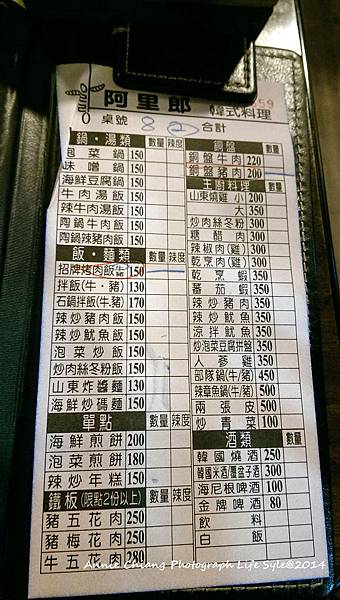 阿里郎 韓式料理 59
桌號 8 ② 合計
鍋·湯類 數量 辣度
泡菜鍋 150
味噌鍋 150
海鮮豆腐鍋 150
牛肉湯飯 150
辣牛肉湯飯 150
陶鍋牛肉飯 150
陶鍋辣豬肉飯 150
飯·麵類 數量 辣度
招牌烤肉飯 150
拌飯(牛·豬) 130
石鍋拌飯(牛·豬) 170
辣炒豬肉飯 150
辣炒魷魚飯 150
泡菜炒飯 150
炒肉絲冬粉飯 150
山東炸醬麵 130
海鮮炒碼麵 150
單點 數量 辣度
海鮮煎餅 200
泡菜煎餅 180
辣炒年糕 150
鐵板(限點2份以上) 數量 辣度
豬五花肉 250
豬梅花肉 250
牛五花肉 280
銅盤 數量
銅盤牛肉 220
銅盤豬肉 200
主廚料理 數量
山東燒雞 小 200
大 350
炒肉絲冬粉 300
糖醋肉 300
辣椒肉(雞) 300
乾烹肉(雞) 350
乾烹蝦 350
蕃茄蝦 350
辣炒豬肉 350
辣炒魷魚 350
涼拌魷魚 350
炒泡菜豆腐拼盤 350
人蔘雞 350
部隊鍋(牛/豬) 450
辣章魚鍋(牛/豬) 500
兩張皮 500
炒青菜 100
酒類 數量
韓國燒酒 250
韓國米酒/覆盆子酒 300
海尼根啤酒 100
金牌啤酒 80
飲料
白飯
Annie Chiang Photograph Life Syle@2014